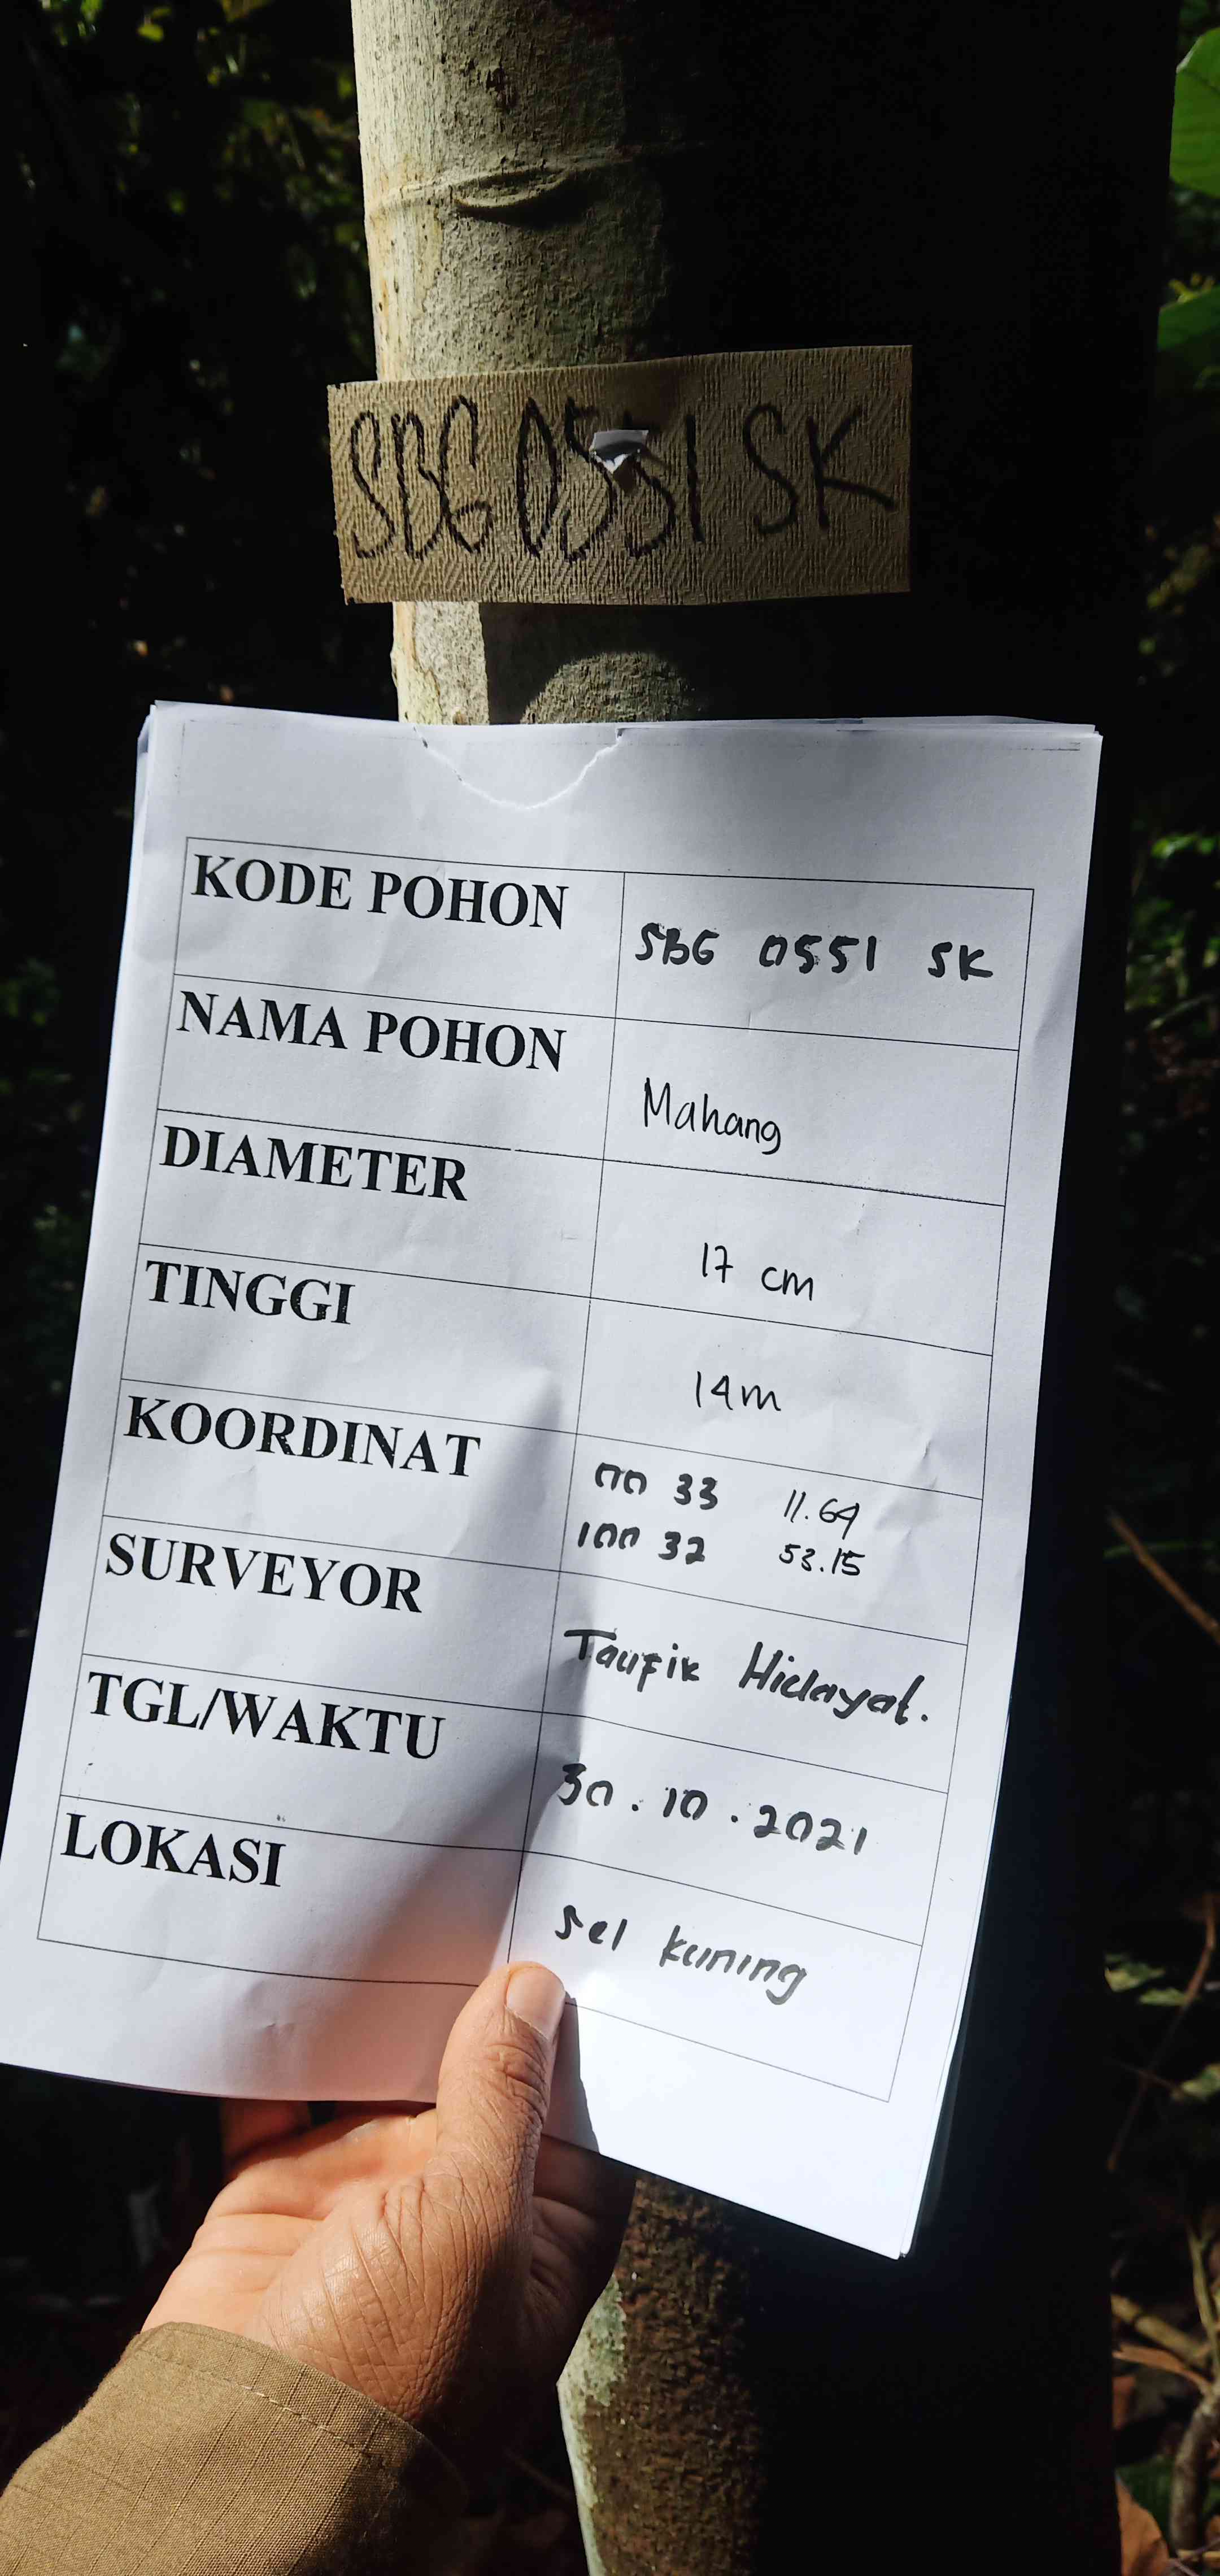 SBG 0551 SK
KODE POHON
SBG 0551 SK
NAMA POHON
Mahang
DIAMETER
17 cm
TINGGI
14m
KOORDINAT
00 33 11.64
100 32 53.15
SURVEYOR
Taufik Hidayat.
TGL/WAKTU
30.10.2021
LOKASI
Sei kuning